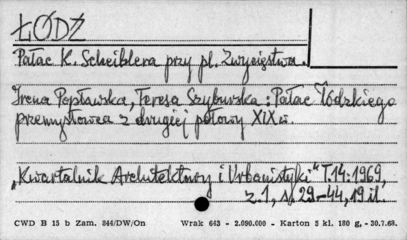 ŁÓDŹ
Pałac K. Scheiblera przy pl. Zwycięstwa.
Irena Popławska, Teresa Szyburska: Pałac łódzkiego
przemysłowca z drugiej połowy XIX w.
„Kwartalnik Architektury i Urbanistyki" T.14:1969,
z.1, s. 29-44, 19 il.
CWD B 15 b Zam. 844/DW/On Wrak 643 - 2.090.000 - Karton 3 kl. 180 g, - 30.7.68.